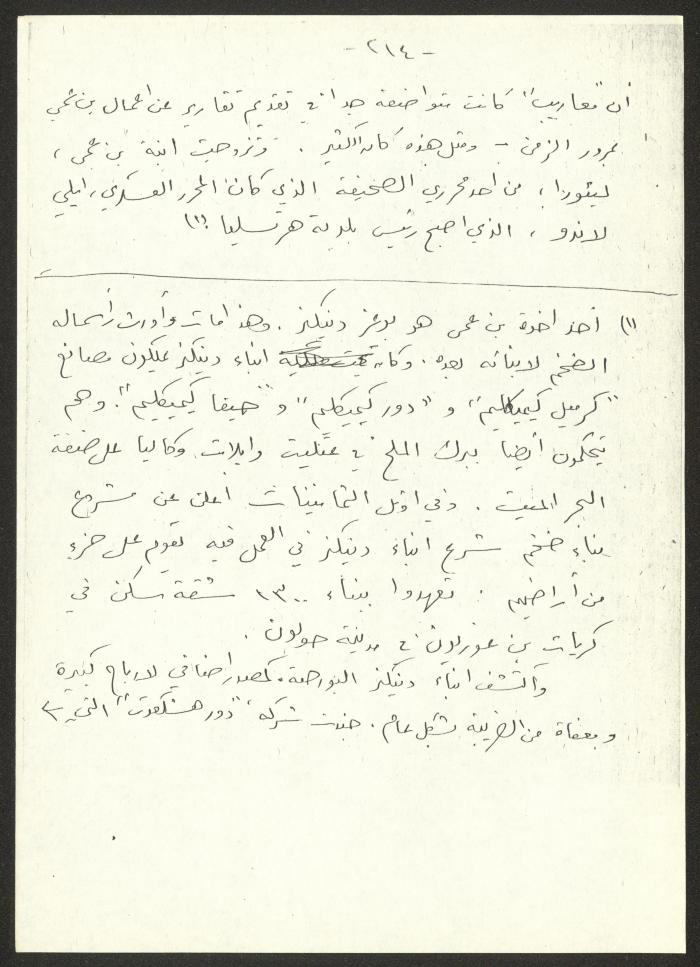 - ٢١٤ -
أن "معاريب" كانت متواضعة جدا في تقديم تقارير عن اعمال بن عمي
بمرور الزمن - ومثل هذه كان الكثير . وتزوجت ابنة بن عمي ،
ليئورا ، من احد محرري الصحيفة الذي كان المحرر العسكري ، ايلي
لاندو ، الذي اصبح رئيس بلدية هرتسليا (١)
(١) أحد اخوة بن عمي هو بوعز دنيكنر . وهذا مات وأورث رأسماله
الضخم لابنائه بعده . وكان ابناء دنيكنر يملكون مصانع
"كرميل كيميكليم" و "دور كيميكليم" و "حيفا كيميكليم" . وهم
يتحكمون أيضا ببرك الملح في عتليت وايلات وكاليا على ضفة
البحر الميت . وفي اوئل الثمانينات أعلن عن مشروع
بناء ضخم شرع ابناء دنيكنر في العمل فيه يقوم على جزء
من أراضيهم . تعهدوا ببناء ١٣٠٠ شقة سكن في
كريات بن غوريون في مدينة حولون .
وأكتشف ابناء دنيكنر البورصة كمصدر اضافي لارباح كبيرة
ومعفاة من الضريبة بشكل عام . جندت شركة "دور هشكعوت" التي